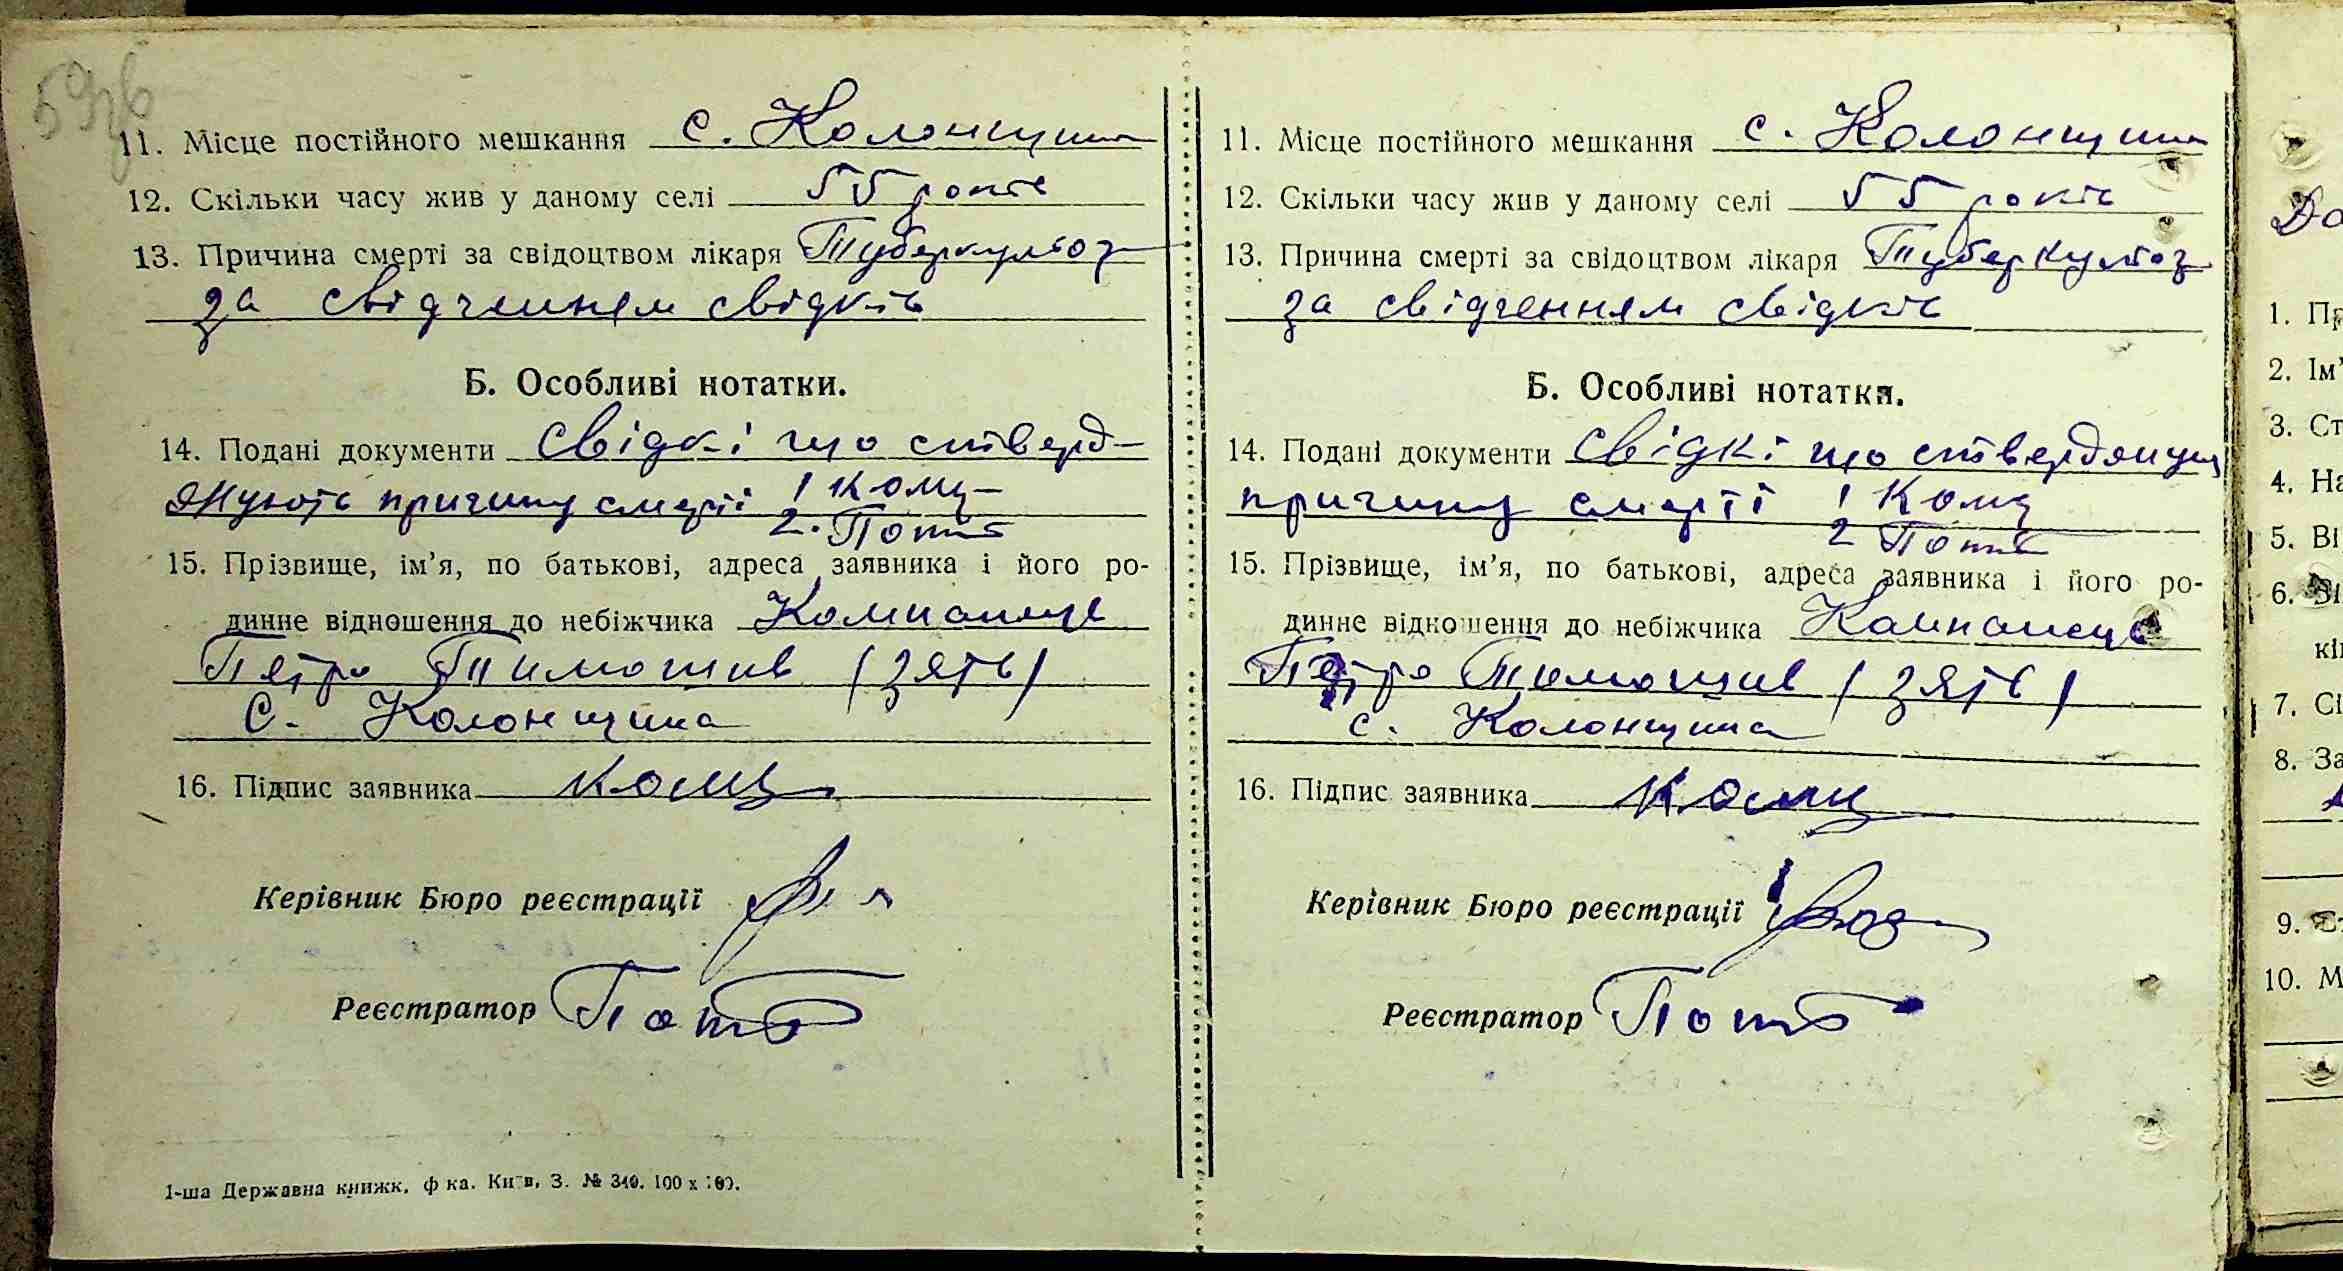 11. Місце постійного мешкання с. Колонщина
12. Скільки часу жив у даному селі 55 років
13. Причина смерті за свідоцтвом лікаря Туберкульоз
за свідченням свідків
Б. Особливі нотатки.
14. Подані документи Свідкі що стверд-
жують причину смерті 1 Комп
2. Пот
15. Прізвище, ім’я, по батькові, адреса заявника і його ро-
динне відношення до небіжчика Компанець
Петро Тимошів (зять)
с. Колонщина
16. Підпис заявника
Керівник Бюро реєстрації
Реєстратор Пот
1-ша Державна книжк. ф-ка. Київ, З. № 340. 100 х 100.
11. Місце постійного мешкання с. Колонщина
12. Скільки часу жив у даному селі 55 років
13. Причина смерті за свідоцтвом лікаря Туберкульоз
за свідченням свідків
Б. Особливі нотатки.
14. Подані документи Свідкі що стверджують
причину смерті 1 Комп
2 Пот
15. Прізвище, ім’я, по батькові, адреса заявника і його ро-
динне відношення до небіжчика Компанець
Петро Тимошів (зять)
с. Колонщина
16. Підпис заявника
Керівник Бюро реєстрації
Реєстратор Пот
1. Пр
2. Ім’
3. Ст
4. На
5. Ві
6. Зі
кі
7. Сі
8. За
9. Ст
10. М